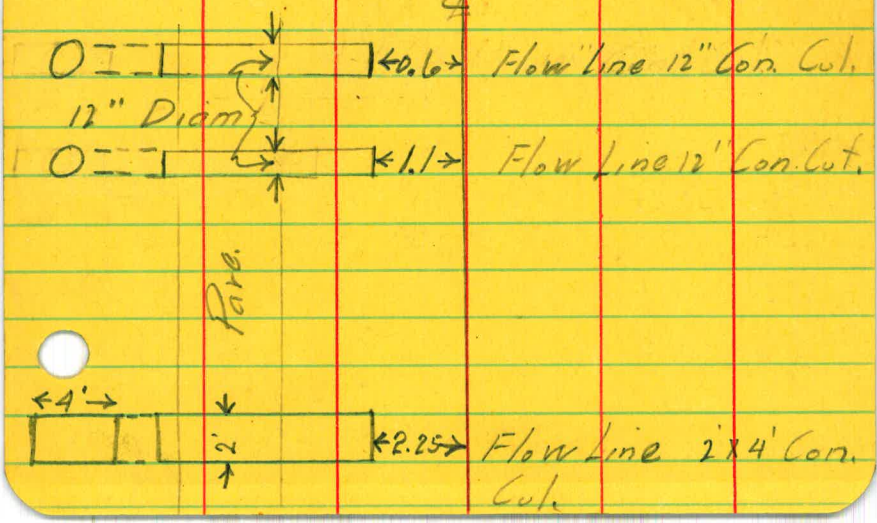 0.6 Flow Line 12" Con. Cul.
12" Diam.
1.1 Flow Line 12" Con. Cul.
Pave.
4'
2' 2.25 Flow Line 2'x4' Con.
Cul.